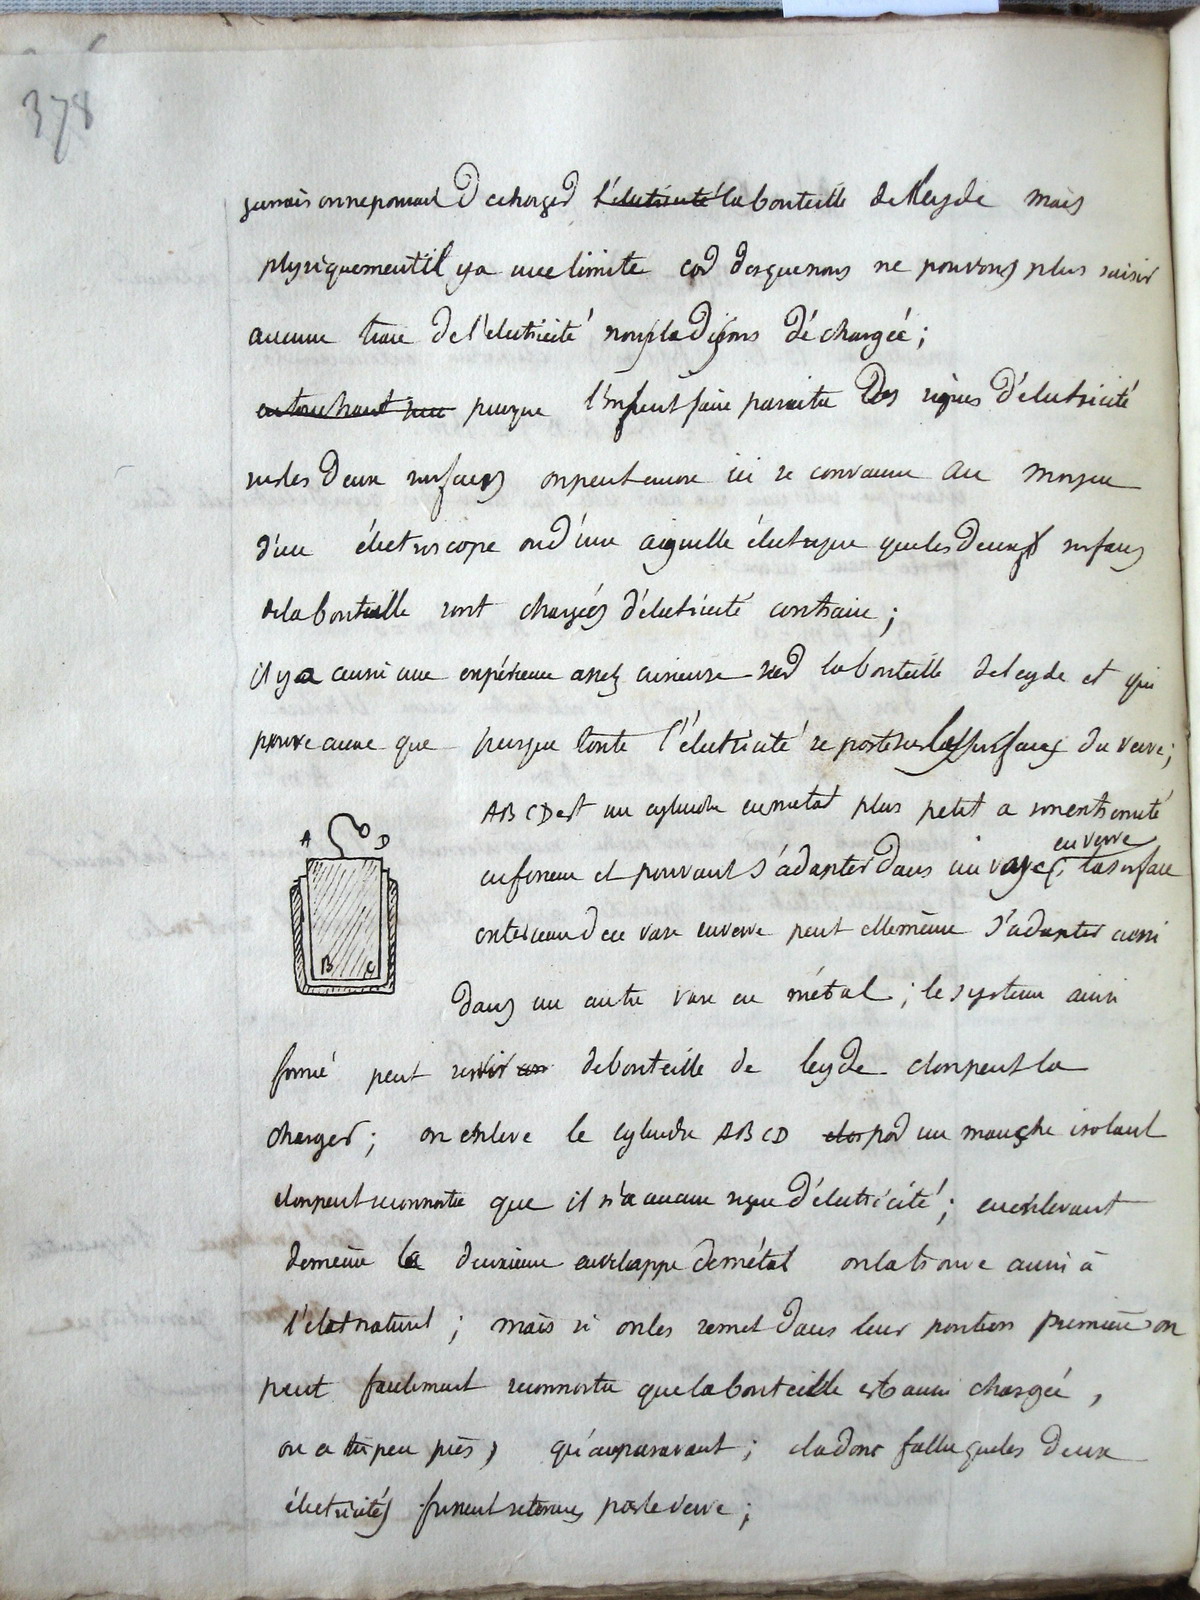 378
jamais on ne pourrait décharger l'électricité la bouteille de Leyde mais
physiquement il y a une limite car dès que nous ne pouvons plus saisir
aucune trace de l'electricité nous la disons déchargée;
en touchant presque l'on peut faire paraitre des signes d'électricité
sur les deux surfaces on peut encore ici se convaincre au moyen
d'un électroscope ou d'une aiguille électrique que les deux surfaces
de la bouteille sont chargées d'électricité contraire;
il y a aussi une expérience assez curieuse sur la bouteille de leyde et qui
prouve que presque toute l'électricité se porte sur les surfaces du verre;
A D
B C
ABCD est un cylindre en metal plus petit a son extremité
en verre
enfoncer et pouvant s'adapter dans un vase, la surface
exterieure de ce vase en verre peut elle même s'adapter aussi
dans un autre vase en métal; le systeme ainsi
formé peut servir de bouteille de leyde et on peut la
charger; on enleve le cylindre ABCD par un manche isolant
et on peut reconnoitre que il n'a aucun signe d'électricité; en enlevant
de même la deuxieme enveloppe de métal on la trouve aussi à
l'etat naturel; mais si on les remet dans leur position premiere on
peut facilement reconnoitre que la bouteille est aussi chargée,
ou a peu près, qu'auparavant; il a donc fallu que les deux
électricités fussent retenues par le verre;